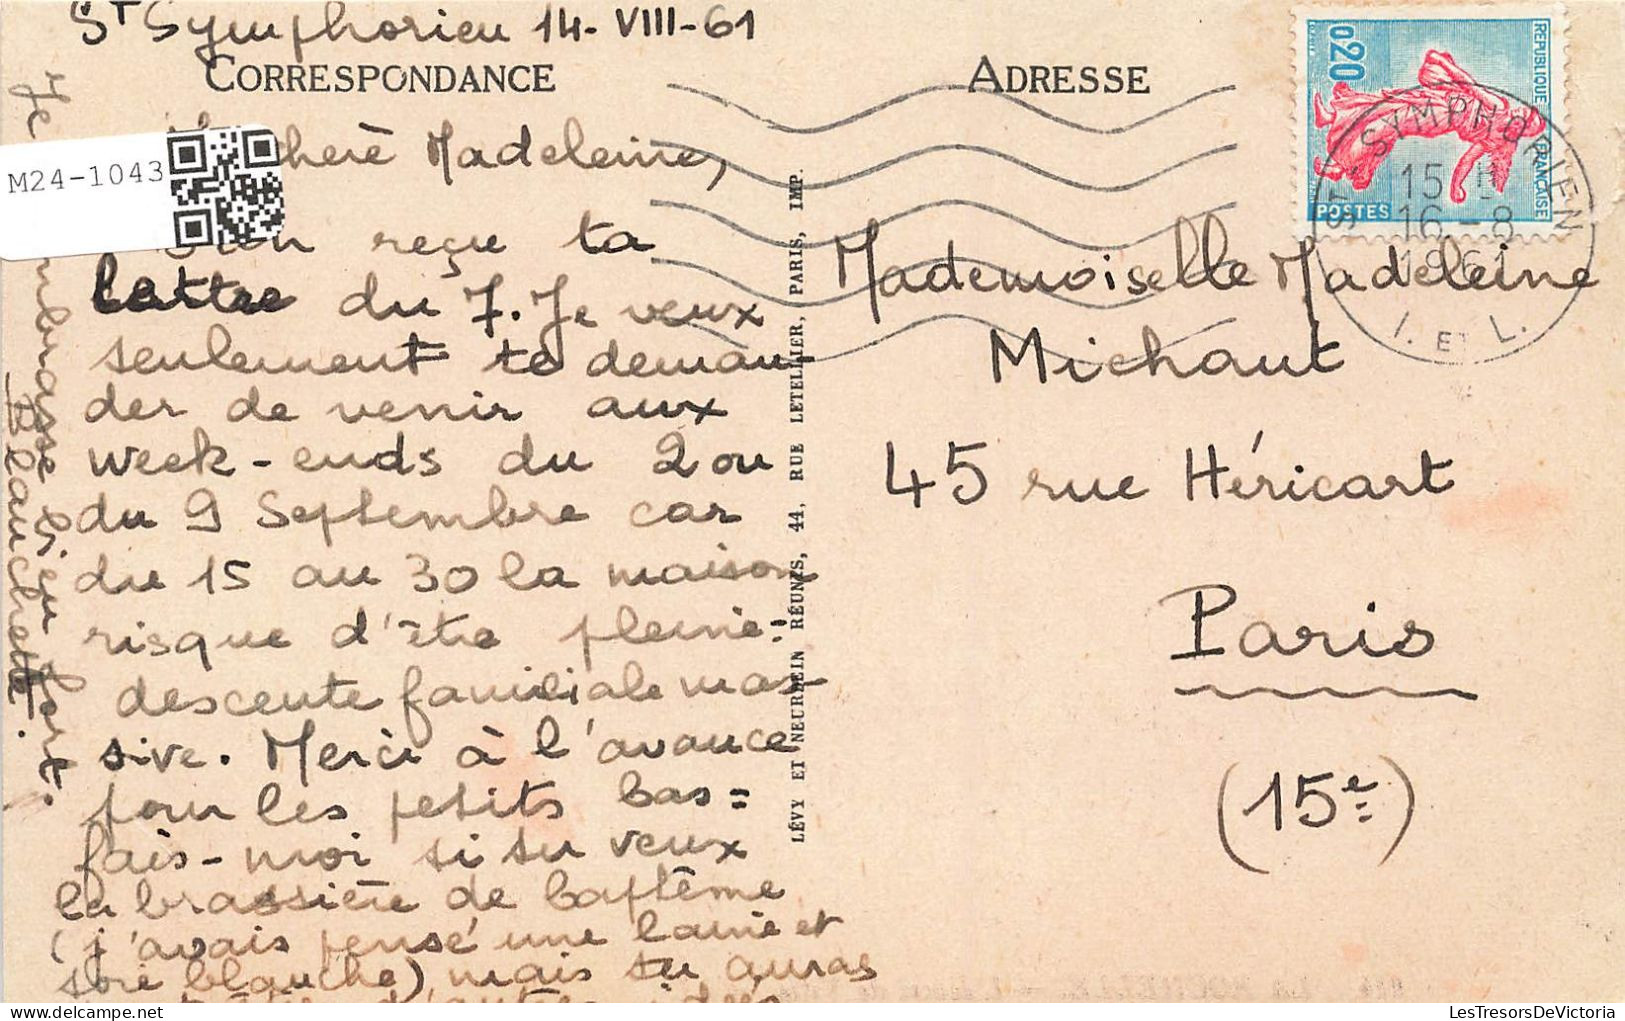 St Symphorien 14-VIII-61
CORRESPONDANCE
chère Madeleine,
M24-1043
reçu ta
lettre du 7. Je veux
seulement te deman-
der de venir aux
week-ends du 2 ou
du 9 Septembre car
du 15 au 30 la maison
risque d'être pleine:
descente familiale mas-
sive. Merci à l'avance
pour les petits bas =
fais-moi si tu veux
la brassière de baptême
(j'avais pensé une laine et
soie blanche) mais tu auras
Je
embrasse bien fort.
Blanchette.
LÉVY ET NEURDEIN RÉUNIS, 44, RUE LETELLIER, PARIS, IMP.
ADRESSE
REPUBLIQUE FRANÇAISE
0,20
POSTES
ST SYMPHORIEN
15 H
16-8
1961
I. ET L.
Mademoiselle Madeleine
Michaut
45 rue Héricart
Paris
(15e)
LesTresorsDeVictoria